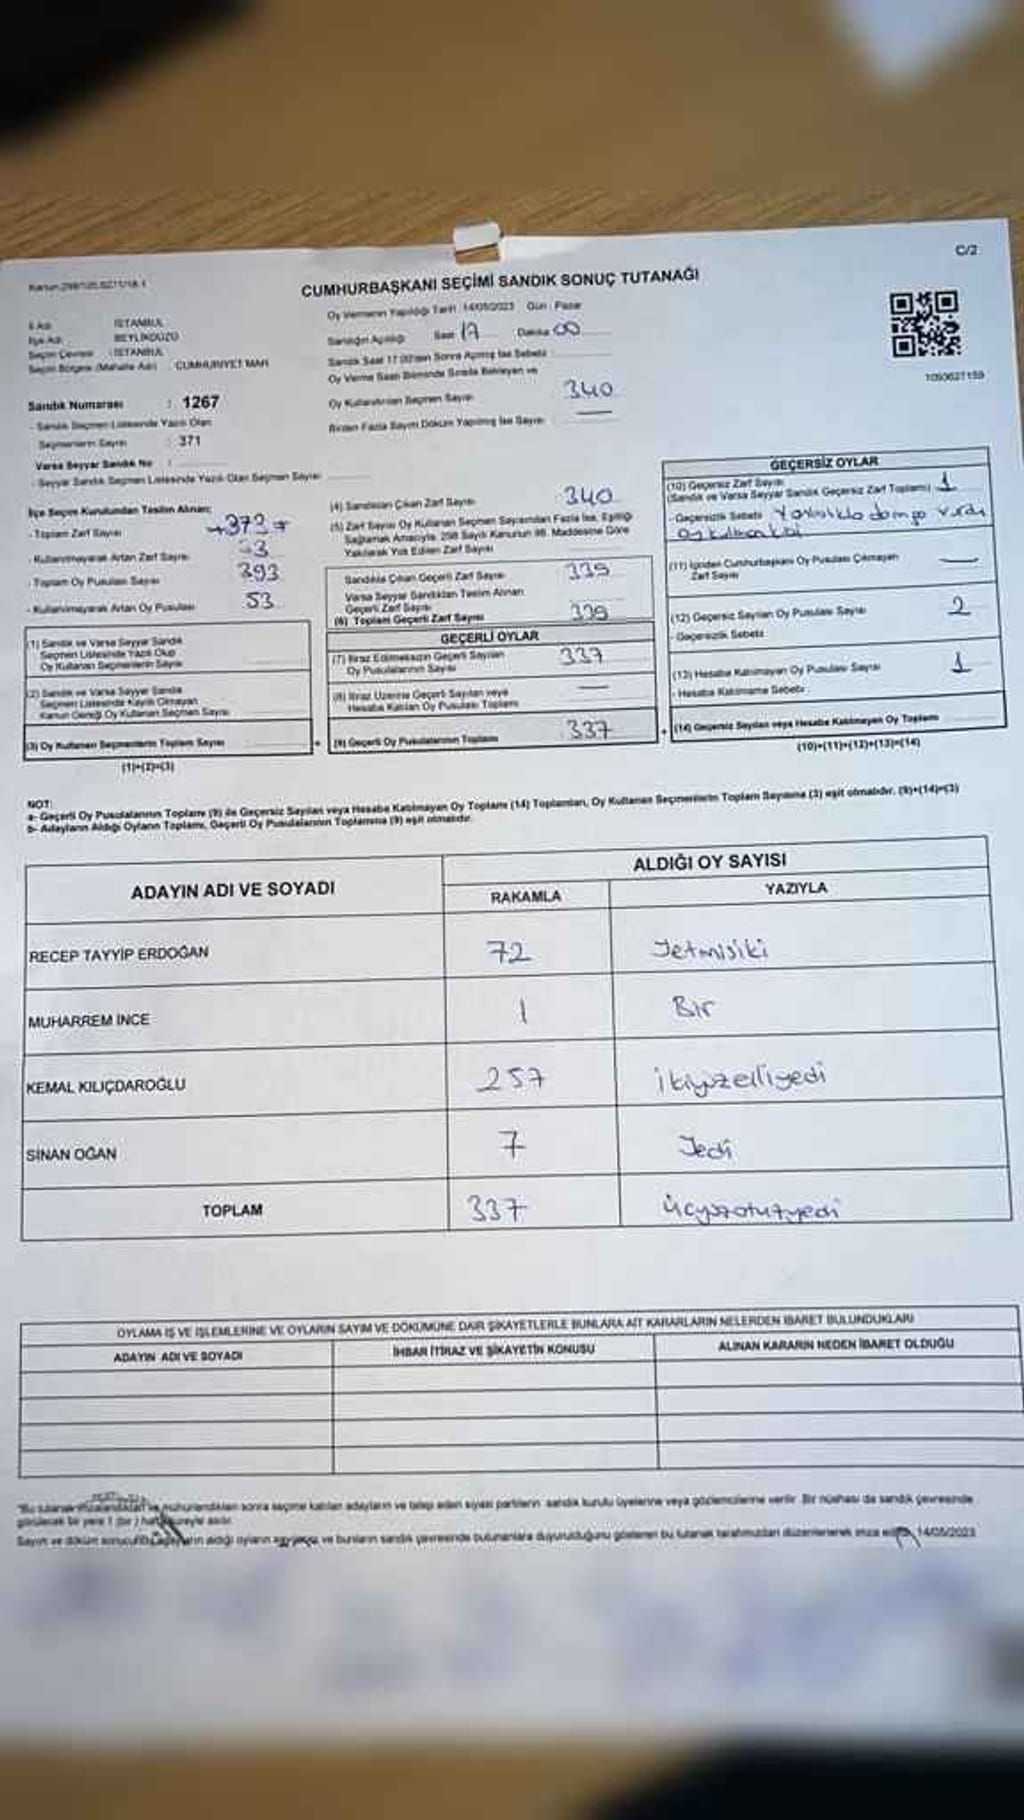 C/2
CUMHURBAŞKANI SEÇİMİ SANDIK SONUÇ TUTANAĞI
İl Adı : İSTANBUL
İlçe Adı : BEYLİKDÜZÜ
Seçim Çevresi : İSTANBUL
Seçim Bölgesi (Mahalle Adı) : CUMHURİYET MAH.
Oy Vermenin Yapıldığı Tarih : 14/05/2023 Gün : Pazar
Sandığın Açılışı Saat 17 Dakika 00
Sandık Saat 17.00'den Sonra Açılmış İse Sebebi :
Oy Verme Saati Bitiminde Sırada Bekleyen ve
Oy Kullandırılan Seçmen Sayısı 340
Birden Fazla Sayım Döküm Yapılmış İse Sayısı : —
Sandık Numarası : 1267
- Sandık Seçmen Listesinde Yazılı Olan
Seçmenlerin Sayısı : 371
Varsa Seyyar Sandık No :
- Seyyar Sandık Seçmen Listesinde Yazılı Olan Seçmen Sayısı :
İlçe Seçim Kurulundan Teslim Alınan;
- Toplam Zarf Sayısı
- Kullanılmayarak Artan Zarf Sayısı
- Toplam Oy Pusulası Sayısı 393
- Kullanılmayarak Artan Oy Pusulası 53
(1) Sandık ve Varsa Seyyar Sandık
Seçmen Listesinde Yazılı Olup
Oy Kullanan Seçmenlerin Sayısı
(2) Sandık ve Varsa Seyyar Sandık
Seçmen Listesinde Kayıtlı Olmayan
Kanun Gereği Oy Kullanan Seçmen Sayısı
(3) Oy Kullanan Seçmenlerin Toplam Sayısı
(1)+(2)=(3)
(4) Sandıktan Çıkan Zarf Sayısı 340
(5) Zarf Sayısı Oy Kullanan Seçmen Sayısından Fazla İse, Eşitliği
Sağlamak Amacıyla, 298 Sayılı Kanunun 98. Maddesine Göre
Yakılarak Yok Edilen Zarf Sayısı
Sandıkta Çıkan Geçerli Zarf Sayısı 339
Varsa Seyyar Sandıktan Teslim Alınan
Geçerli Zarf Sayısı
(6) Toplam Geçerli Zarf Sayısı 339
GEÇERLİ OYLAR
(7) İtiraz Edilmeksizin Geçerli Sayılan
Oy Pusulalarının Sayısı 337
(8) İtiraz Üzerine Geçerli Sayılan veya
Hesaba Katılan Oy Pusulası Toplamı —
(9) Geçerli Oy Pusulalarının Toplamı 337
GEÇERSİZ OYLAR
(10) Geçersiz Zarf Sayısı
(Sandık ve Varsa Seyyar Sandık Geçersiz Zarf Toplamı) 1
- Geçersizlik Sebebi
(11) İçinden Cumhurbaşkanı Oy Pusulası Çıkmayan
Zarf Sayısı —
(12) Geçersiz Sayılan Oy Pusulası Sayısı 2
- Geçersizlik Sebebi
(13) Hesaba Katılmayan Oy Pusulası Sayısı 1
- Hesaba Katılmama Sebebi :
(14) Geçersiz Sayılan veya Hesaba Katılmayan Oy Toplamı
(10)+(11)+(12)+(13)=(14)
NOT:
a- Geçerli Oy Pusulalarının Toplamı (9) ile Geçersiz Sayılan veya Hesaba Katılmayan Oy Toplamı (14) Toplamları, Oy Kullanan Seçmenlerin Toplam Sayısına (3) eşit olmalıdır. (9)+(14)=(3)
b- Adayların Aldığı Oyların Toplamı, Geçerli Oy Pusulalarının Toplamına (9) eşit olmalıdır.
ADAYIN ADI VE SOYADI
ALDIĞI OY SAYISI
RAKAMLA YAZIYLA
RECEP TAYYİP ERDOĞAN 72 Yetmişiki
MUHARREM İNCE 1 Bir
KEMAL KILIÇDAROĞLU 257 ikiyüzelliyedi
SİNAN OĞAN 7 Yedi
TOPLAM 337 üçyüzotuzyedi
OYLAMA İŞ VE İŞLEMLERİNE VE OYLARIN SAYIM VE DÖKÜMÜNE DAİR ŞİKAYETLERLE BUNLARA AİT KARARLARIN NELERDEN İBARET BULUNDUKLARI
ADAYIN ADI VE SOYADI İHBAR İTİRAZ VE ŞİKAYETİN KONUSU ALINAN KARARIN NEDEN İBARET OLDUĞU
mühürlendikten sonra seçime katılan adayların ve talep eden siyasi partilerin sandık kurulu üyelerine veya gözlemcilerine verilir. Bir nüshası da sandık çevresinde
Sayım ve döküm aldığı oyların ve bunların sandık çevresinde bulunanlara duyurulduğunu gösteren bu tutanak tarafımızdan düzenlenerek imza 14/05/2023